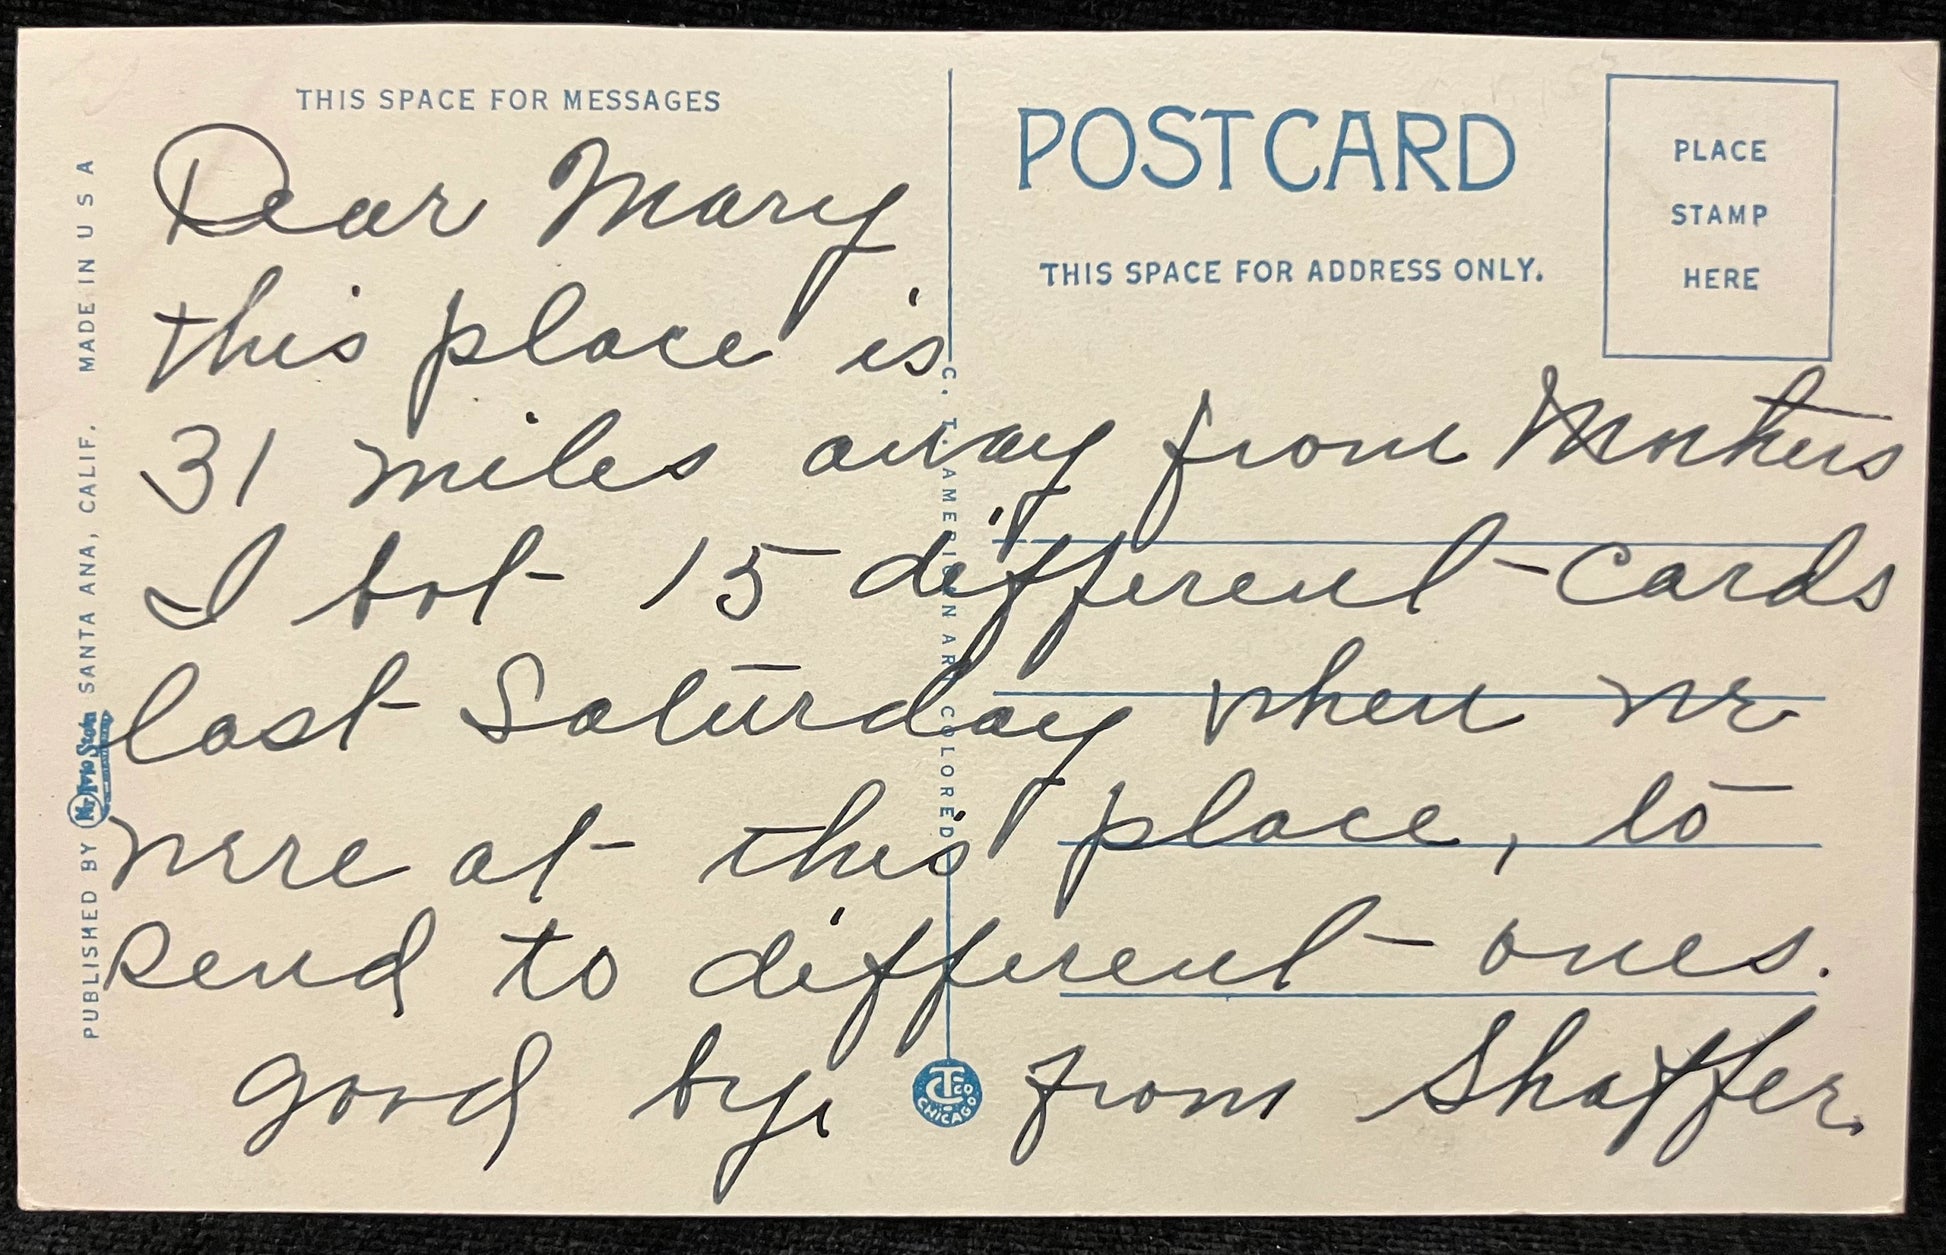 THIS SPACE FOR MESSAGES
POSTCARD
PLACE
STAMP
HERE
THIS SPACE FOR ADDRESS ONLY.
Dear Mary
this place is
31 miles away from Mothers
I bot 15 different cards
last Saturday when we
were at this place, to
send to different ones.
good bye from Shaffer.
PUBLISHED BY SANTA ANA, CALIF. MADE IN U S A
C. T. AMERICAN ART COLORED
CHICAGO